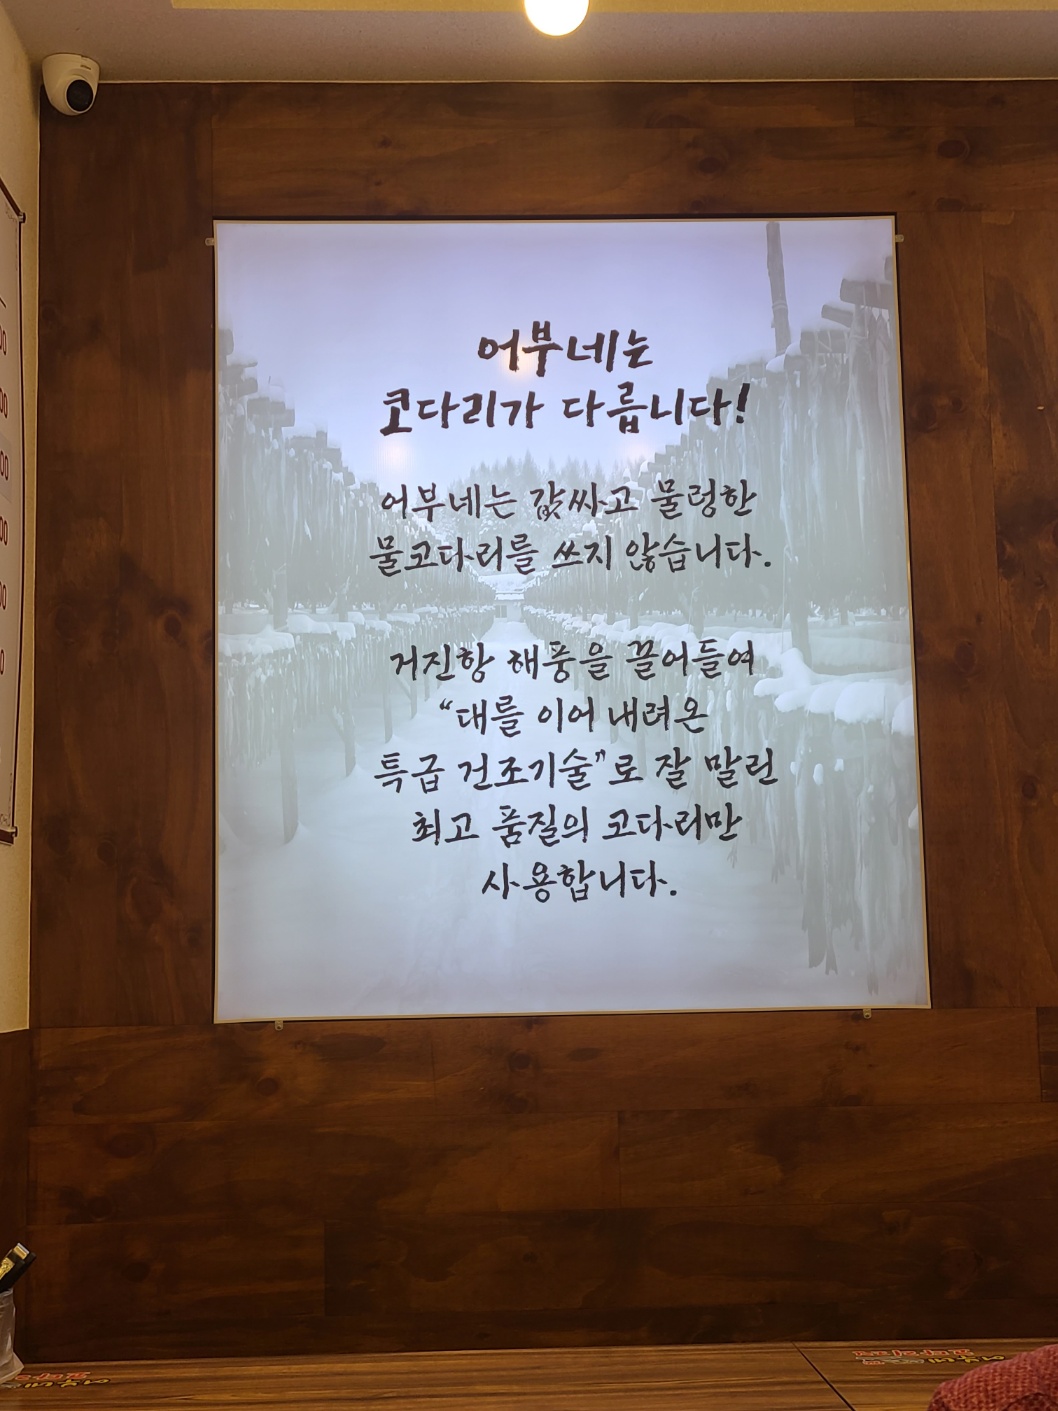 어부네는
코다리가 다릅니다!
어부네는 값싸고 물렁한
물코다리를 쓰지 않습니다.
거진항 해풍을 끌어들여
“대를 이어 내려온
특급 건조기술”로 잘 말린
최고 품질의 코다리만
사용합니다.